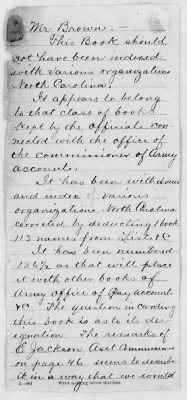 Mr Brown: -
This Book should
not have been indexed
with various organizations
North Carolina.
It appears to belong
to that class of books
kept by the officials con
nected with the office of
the commissioner of Army
accounts.
It has been withdrawn
and index of various
organizations North Carolina
corrected by deducting 1 book
113 names from Lists &c
It has been numbered
136½ as that will place
it with other books of
Army Office of Pay, account
&c The question in carding
this book is as to its des-
ignation. The remarks of
E. Jackson Asst Commissioner
on page 46 seems to describe
it in a way that we would
Write nothing below this line.